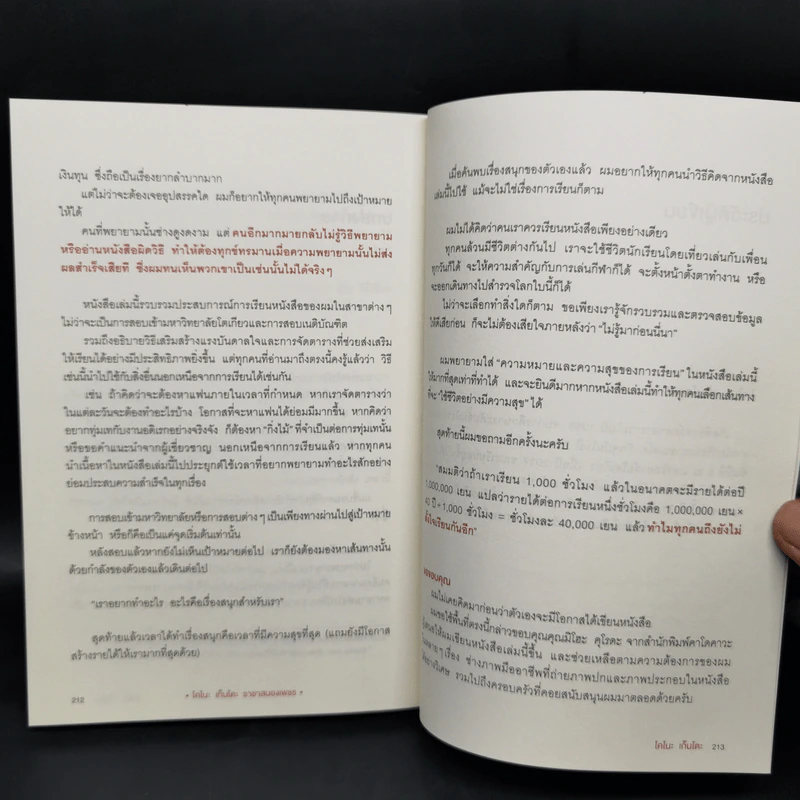 เงินทุน ซึ่งถือเป็นเรื่องยากลำบากมาก
แต่ไม่ว่าจะต้องเจออุปสรรคใด ผมก็อยากให้ทุกคนพยายามไปถึงเป้าหมาย
ให้ได้
คนที่พยายามนั้นช่างสูงดงาม แต่ คนอีกมากมายกลับไม่รู้วิธีพยายาม
หรืออ่านหนังสือผิดวิธี ทำให้ต้องทุกข์ทรมานเมื่อความพยายามนั้นไม่ส่ง
ผลสำเร็จเสียที ซึ่งผมทนเห็นพวกเขาเป็นเช่นนั้นไม่ได้จริงๆ
หนังสือเล่มนี้รวบรวมประสบการณ์การเรียนหนังสือของผมในสาขาต่างๆ
ไม่ว่าจะเป็นการสอบเข้ามหาวิทยาลัยโตเกียวและการสอบเนติบัณฑิต
รวมถึงอธิบายวิธีเสริมสร้างแรงบันดาลใจและการจัดตารางที่ช่วยส่งเสริม
ให้เรียนได้อย่างมีประสิทธิภาพยิ่งขึ้น แต่ทุกคนที่อ่านมาถึงตรงนี้คงรู้แล้วว่า วิธี
เช่นนี้นำไปใช้กับสิ่งอื่นนอกเหนือจากการเรียนได้เช่นกัน
เช่น ถ้าคิดว่าจะต้องหาแฟนภายในเวลาที่กำหนด หากเราจัดตารางว่า
ในแต่ละวันจะต้องทำอะไรบ้าง โอกาสที่จะหาแฟนได้ย่อมมีมากขึ้น หากคิดว่า
อยากทุ่มเทกับงานอดิเรกอย่างจริงจัง ก็ต้องหา "กิ่งไม้" ที่จำเป็นต่อการทุ่มเทนั้น
หรือขอคำแนะนำจากผู้เชี่ยวชาญ นอกเหนือจากการเรียนแล้ว หากทุกคน
นำเนื้อหาในหนังสือเล่มนี้ไปประยุกต์ใช้เวลาที่อยากพยายามทำอะไรสักอย่าง
ย่อมประสบความสำเร็จในทุกเรื่อง
การสอบเข้ามหาวิทยาลัยหรือการสอบต่างๆ เป็นเพียงทางผ่านไปสู่เป้าหมาย
ข้างหน้า หรือก็คือเป็นแค่จุดเริ่มต้นเท่านั้น
หลังสอบแล้วหากยังไม่เห็นเป้าหมายต่อไป เราก็ยังต้องมองหาเส้นทางนั้น
ด้วยกำลังของตัวเองแล้วเดินต่อไป
"เราอยากทำอะไร อะไรคือเรื่องสนุกสำหรับเรา"
สุดท้ายแล้วเวลาได้ทำเรื่องสนุกคือเวลาที่มีความสุขที่สุด (แถมยังมีโอกาส
สร้างรายได้ให้เรามากที่สุดด้วย)
212
โคโนะ เก็นโตะ ราชาสมองเพชร
เมื่อค้นพบเรื่องสนุกของตัวเองแล้ว ผมอยากให้ทุกคนนำวิธีคิดจากหนังสือ
เล่มนี้ไปใช้ แม้จะไม่ใช่เรื่องการเรียนก็ตาม
ผมไม่ได้คิดว่าคนเราควรเรียนหนังสือเพียงอย่างเดียว
ทุกคนล้วนมีชีวิตต่างกันไป เราจะใช้ชีวิตนักเรียนโดยเที่ยวเล่นกับเพื่อน
ทุกวันก็ได้ จะให้ความสำคัญกับการเล่นกีฬาก็ได้ จะตั้งหน้าตั้งตาทำงาน หรือ
จะออกเดินทางไปสำรวจโลกใบนี้ก็ได้
ไม่ว่าจะเลือกทำสิ่งใดก็ตาม ขอเพียงเรารู้จักรวบรวมและตรวจสอบข้อมูล
ให้ดีเสียก่อน ก็จะไม่ต้องเสียใจภายหลังว่า "ไม่รู้มาก่อนนี่นา"
ผมพยายามใส่ "ความหมายและความสุขของการเรียน" ในหนังสือเล่มนี้
ให้มากที่สุดเท่าที่ทำได้ และจะยินดีมากหากหนังสือเล่มนี้ทำให้ทุกคนเลือกเส้นทาง
ที่จะ "ใช้ชีวิตอย่างมีความสุข" ได้
สุดท้ายนี้ผมขอถามอีกครั้งนะครับ
"สมมติว่าถ้าเราเรียน 1,000 ชั่วโมง แล้วในอนาคตจะมีรายได้ต่อปี
1,000,000 เยน แปลว่ารายได้ต่อการเรียนหนึ่งชั่วโมงคือ 1,000,000 เยน ×
40 ปี ÷ 1,000 ชั่วโมง = ชั่วโมงละ 40,000 เยน แล้วทำไมทุกคนถึงยังไม่
ตั้งใจเรียนกันอีก"
ขอขอบคุณ
ผมไม่เคยคิดมาก่อนว่าตัวเองจะมีโอกาสได้เขียนหนังสือ
ผมขอใช้พื้นที่ตรงนี้กล่าวขอบคุณคุณมิโฮะ คุโรดะ จากสำนักพิมพ์คาโดคาวะ
ให้ผมเขียนหนังสือเล่มนี้ขึ้น และช่วยเหลือตามความต้องการของผม
หลายๆ เรื่อง ช่างภาพมืออาชีพที่ถ่ายภาพปกและภาพประกอบในหนังสือ
อย่างวิเศษ รวมไปถึงครอบครัวที่คอยสนับสนุนผมมาตลอดด้วยครับ
โคโนะ เก็นโตะ 213